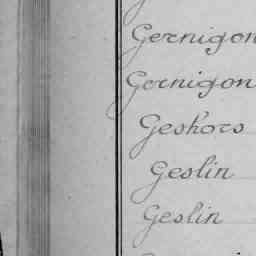 Gernigon
Gernigon
Geshors
Geslin
Geslin